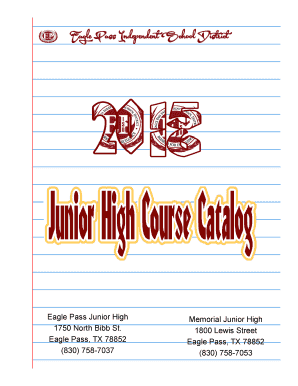 Eagle Pass Independent School District
2015
Junior High Course Catalog
Eagle Pass Junior High
1750 North Bibb St.
Eagle Pass, TX 78852
(830) 758-7037
Memorial Junior High
1800 Lewis Street
Eagle Pass, TX 78852
(830) 758-7053